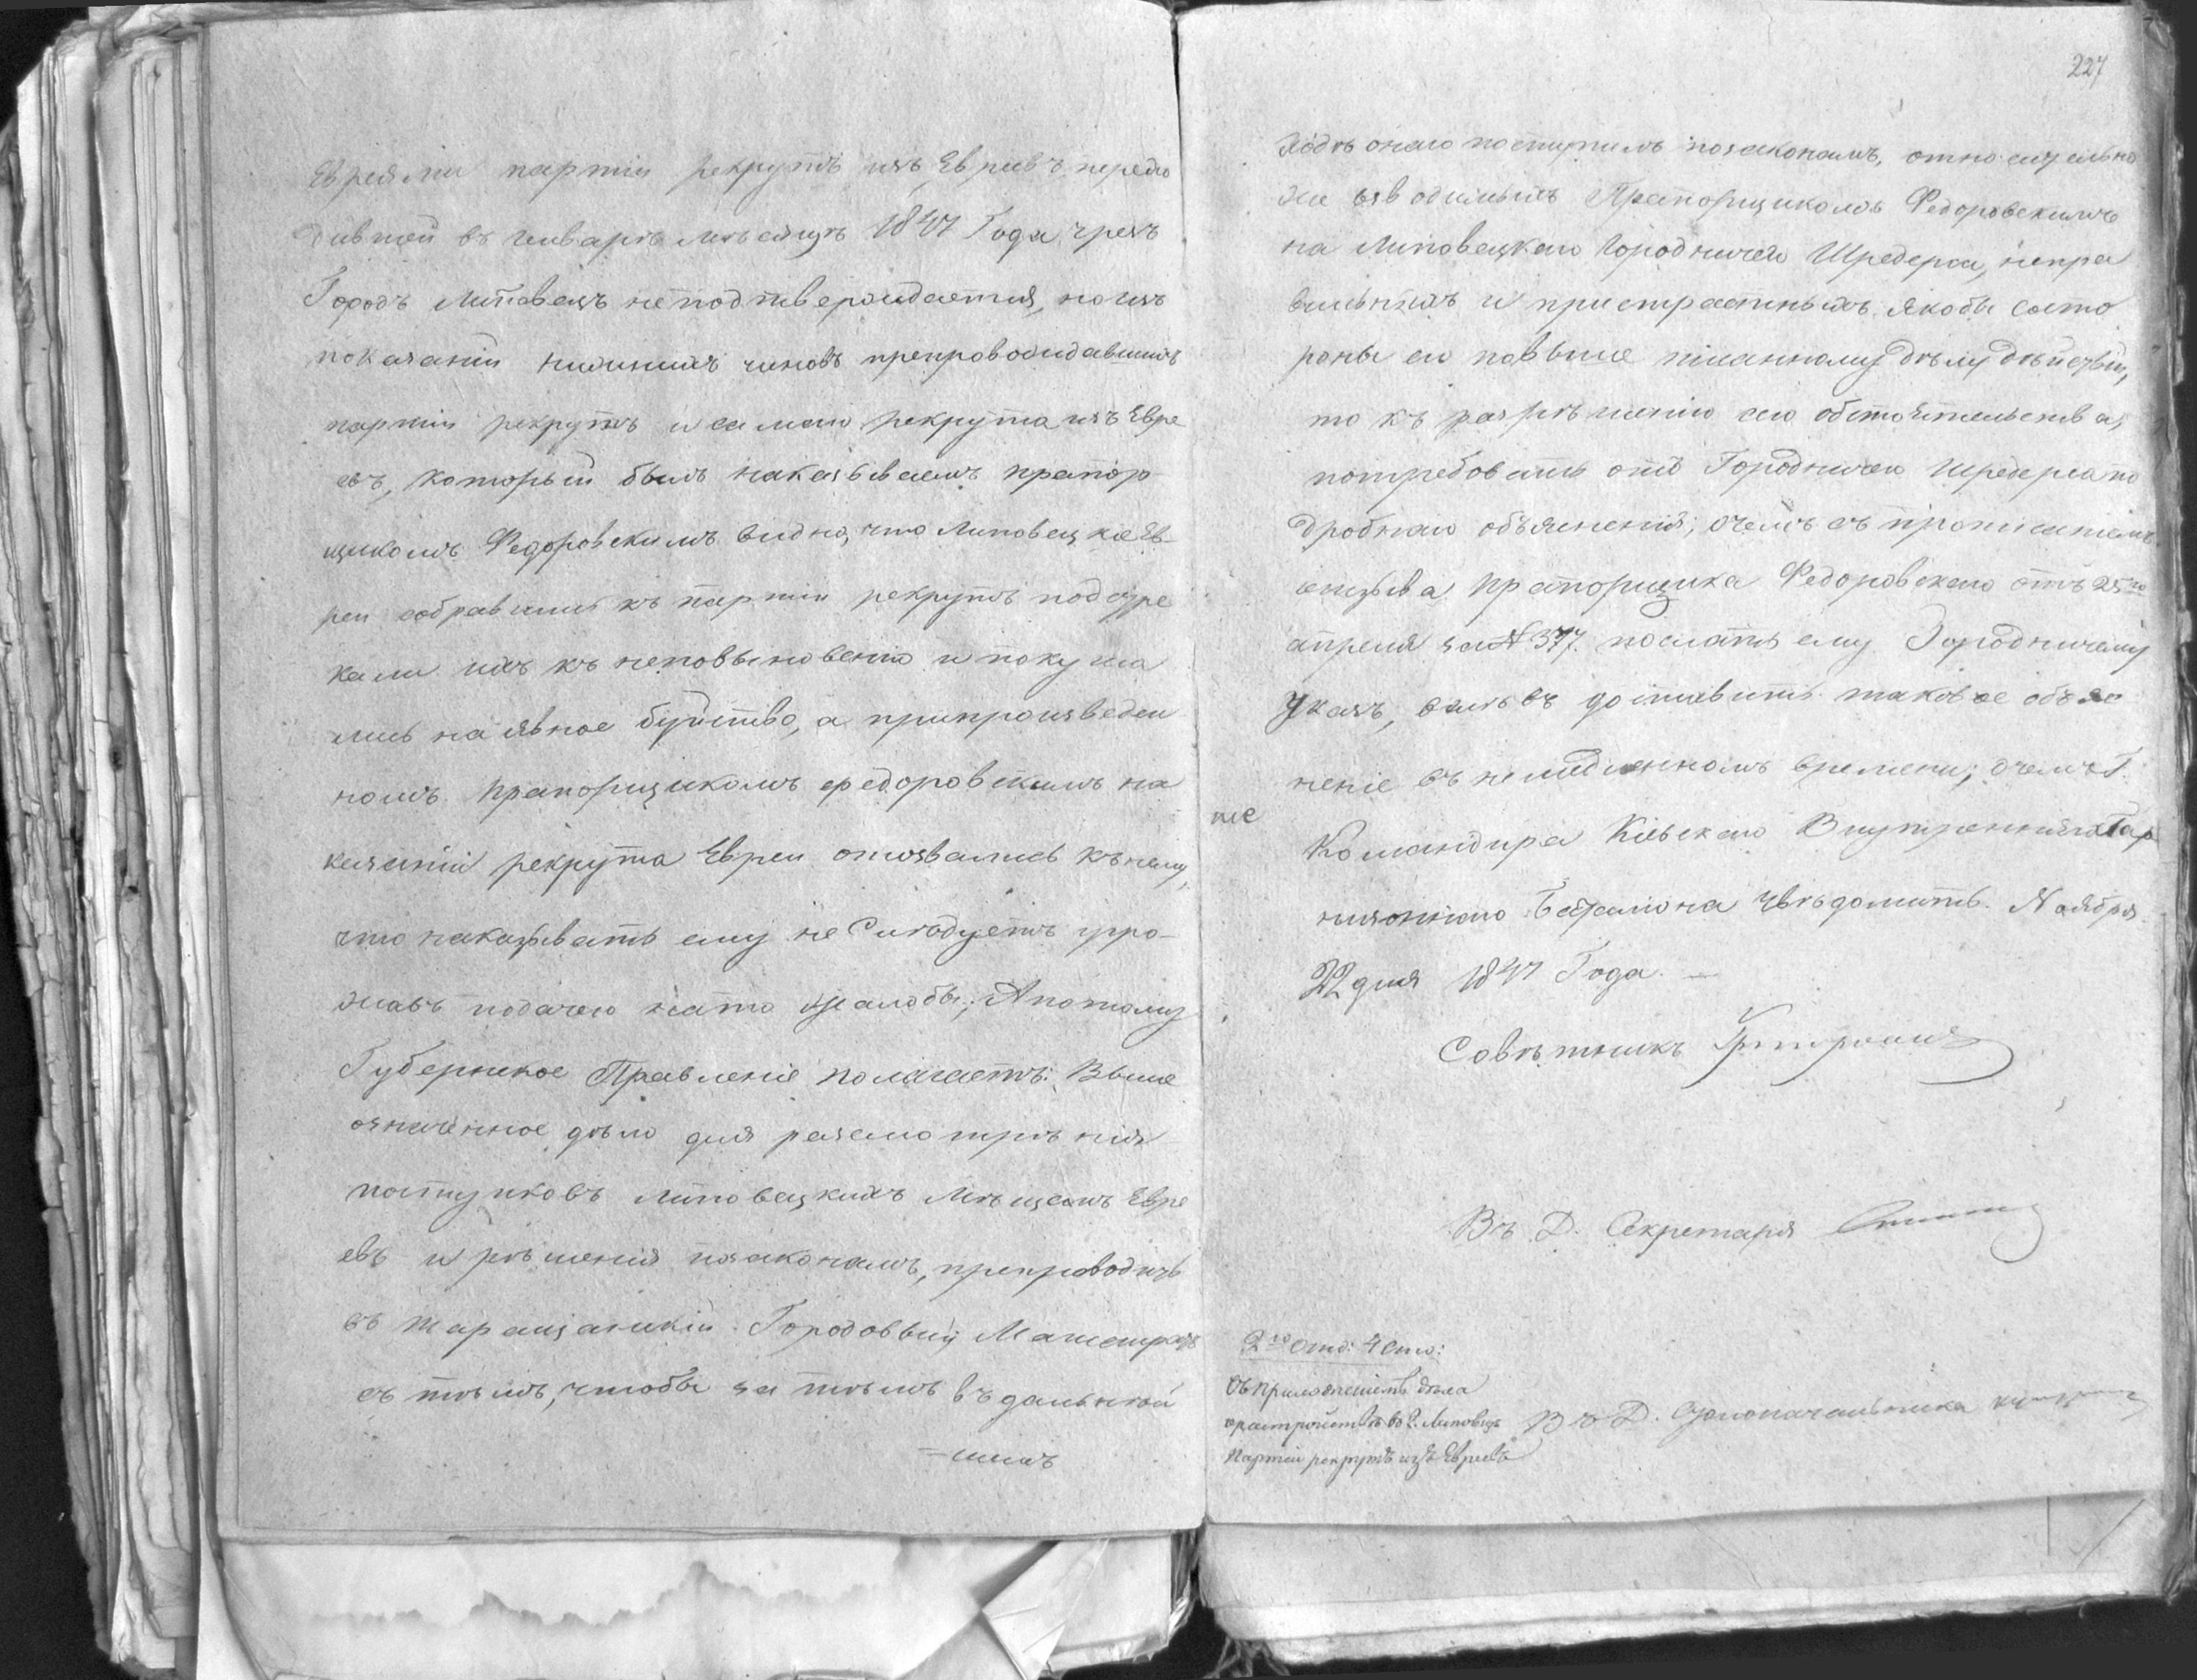 Евреями партіи рекрутъ изъ Евреевъ перехо
дившей въ Январѣ мѣсяцѣ 1847 Года, чрезъ
Городъ Липовецъ неподтверждается, но изъ
показаній нижнихъ чиновъ препровождавшихъ
партію рекрутъ и самаго рекрута изъ Евре
евъ, который былъ наказываемъ прапор
щикомъ Федоровскимъ видно, что Липовецкіе Ев-
реи собравшись къ партіи рекрутъ подстре
кали ихъ къ неповыновенію и покуша
лись на явное буйство, а припроизведен
номъ прапорщикомъ Федоровскимъ на
казаніи рекрута Евреи отозвались къ нему,
что наказывать ему не Слѣдуетъ угро-
жавъ подачею на то жалобы; А потому
Губернское Правленіе полагаетъ: Выше
означенное дѣло для разсмотрѣнія
поступковъ Липовецкихъ Мѣщанъ Евре
евъ и рѣшенія позаконамъ, препроводить
въ Таращанскій Городовый Магистратъ
съ тѣмъ, чтобы за тѣмъ въ дальнѣй
=шемъ
227
ходѣ онаго поступилъ позаконамъ, относительно
же взводимыхъ Прапорщикомъ Федоровскимъ
на Липовецкаго Городничаго Шредерса, непра
вильныхъ и пристрастныхъ якобы состо
роны его повыше писанному дѣлу дѣйствій,
то къ разрѣшенію сего обстоятельства,
потребовать отъ Городничаго Шредерса по
дробнаго объясненія; очемъ съ прописаніемъ
отзыва прапорщика Федоровскаго отъ 25го
апреля за № 377. послать ему Городничему
Указъ, велѣвъ доставить таковое объяс
неніе въ немедленномъ времени; очемъ Г.
Командира Кіевскаго Внутренняго Гар
низоннаго Баталіона увѣдомить. Ноября
22 дня 1847 Года. —
Совѣтникъ
Въ Д. Секретаря
2го Отд: 4 Сто:
Съ приложеніемъ дѣла
въ Г. Липовцѣ
Партіи рекрутъ изъ Евреевъ
В Д. Столоначальника